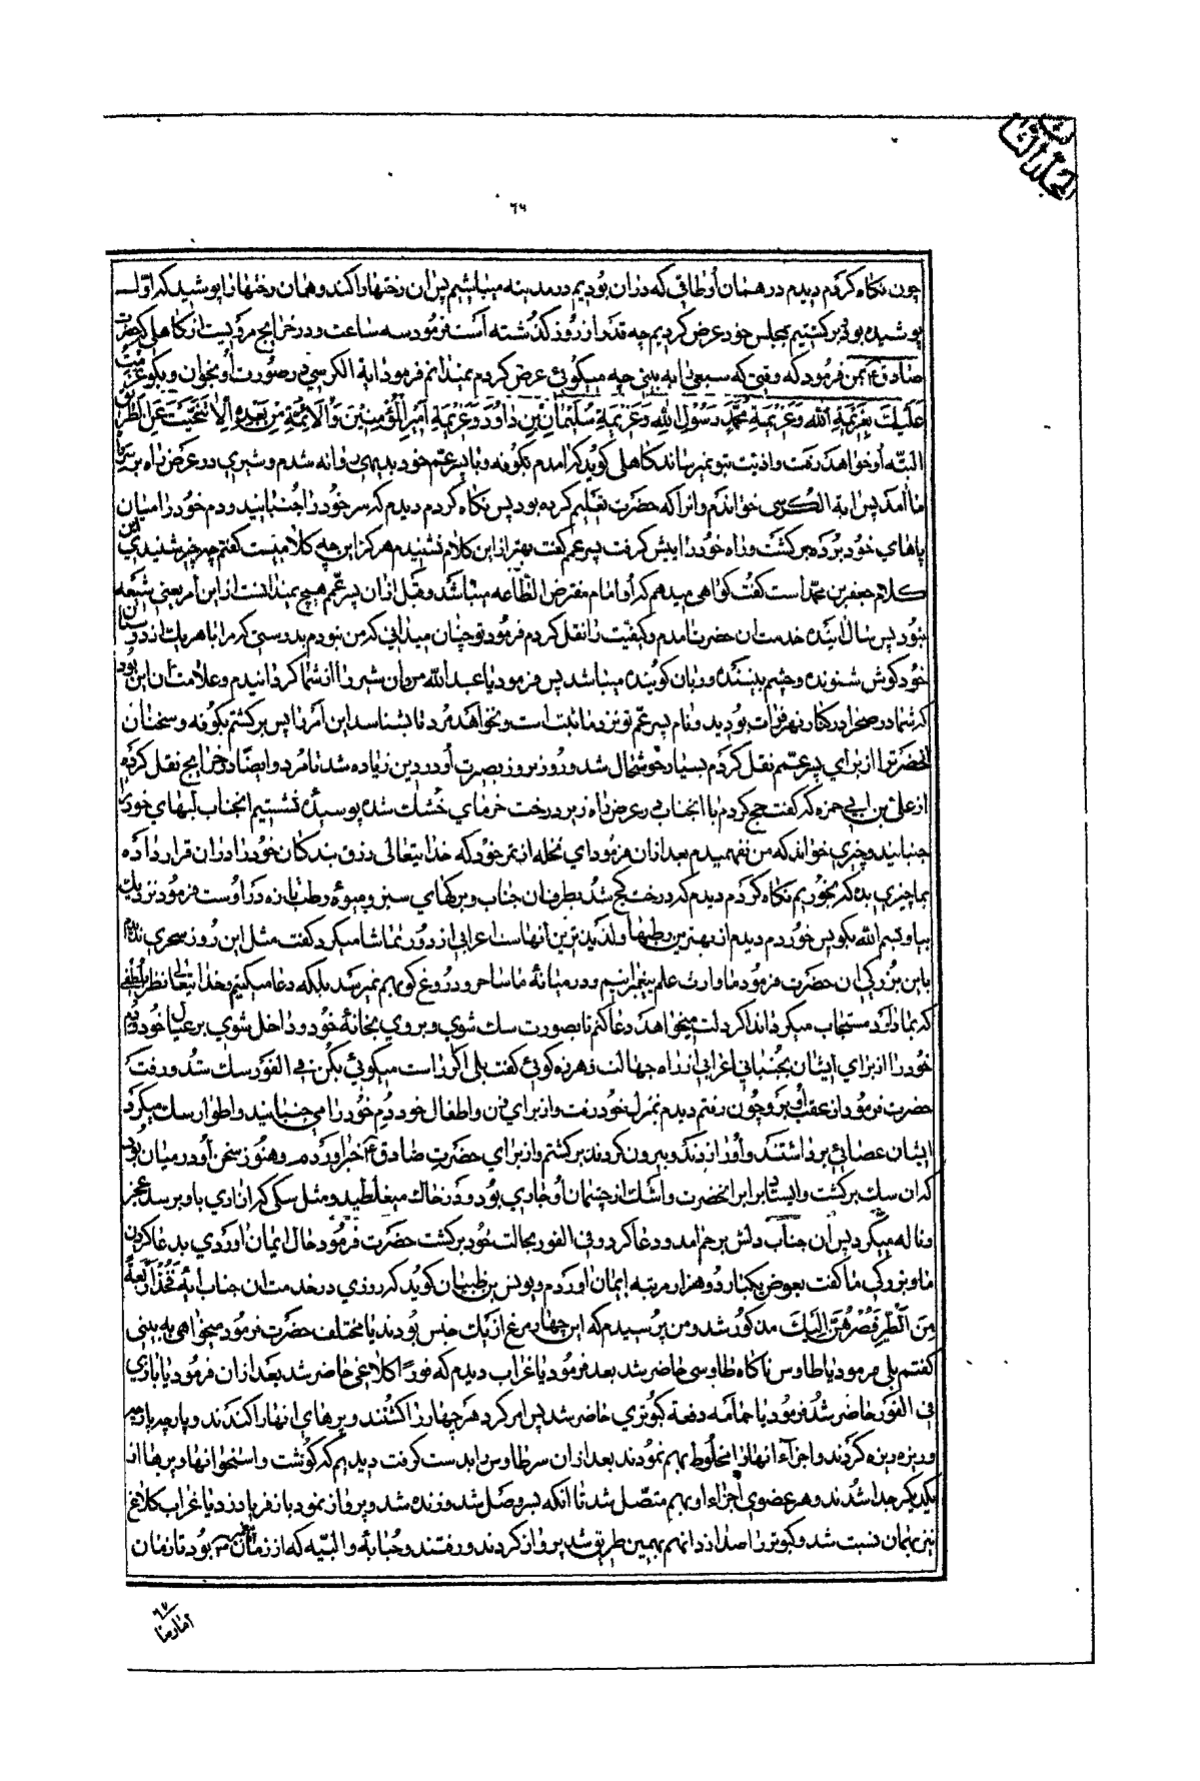 المجلد الثالث
٦٦
چون نگاه کردم دیدم در همان اوطاقی که دران بودیم در مدینه میباشیم پس ان رختها را کند و همان رختها را پوشید که اول
پوشیده بود برگشتیم بمجلس خود عرض کردیم چه قدر از روز گذشته است فرمود سه ساعت و در خرایج مرویست از کاهلی که حضرت
صادق ع بمن فرمود که وقتی که سبعی را به بینی چه میگوئی عرض کردم نمیدانم فرمود ایة الکرسی در صورت او بخوان و بگو عزمت
علیک بعزیمة الله و عزیمة محمد رسول الله و عزیمة سلیمان بن داود و عزیمة امیر المؤمنین و الائمة من بعده الا تنحیت عن الطریق
البته او خواهد رفت و اذیت بتو نمیرساند کاهلی گوید که امدم بکوفه و با پسر عم خود بدیهی روانه شدم و شیری در عرض راه بر سر راه
ما امد پس ایة الکرسی خواندم و انرا که حضرت تعلیم کرده بود پس نگاه کردم دیدم که سر خود را جنبانید و دم خود را میان
پاهای خود برده برگشت و راه خود را پیش گرفت پسر عم گفت بهتر از این کلام نشنیدم هرگز این چه کلامیست گفتم چه چیز شنیدی این
کلام جعفر بن محمد است گفت گواهی میدهم که او امام مفترض الطاعه میباشد و قبل از ان پسر عمم هیچ نمیدانست از این امر یعنی شیعه
نبود پس سال اینده خدمت ان حضرت امدم و کیفیت را نقل کردم فرمود تو چنان میدانی که من نبودم بدرستی که مرا با هر یک از دوستان
خود گوش شنونده و چشم بیننده و زبان گوینده میباشد پس فرمود یا عبد الله من ان شیر را از شما گردانیدم و علامت ان این بود
که شما در صحرا در کنار نهر فرات بودید و نام پسر عم تو نزد ما ثبت است و نخواهد مرد تا بشناسد این امر را پس برگشتم بکوفه و سخنان
انحضرت را از برای پسر عمم نقل کردم بسیار خوشحال شد و روز بروز بصیرت او در دین زیاده شد تا مرد و ایضا در خرایج نقل کرده
از علی بن ابی حمزه که گفت حج کردم با انجناب در عرض راه زیر درخت خرمای خشک شده پوسیده نشستیم انجناب لبهای خود را
جنبانید و چیزی خواند که من نفهمیدم بعد از ان فرمود ای نخله از ثمر خود که خدایتعالی رزق بندگان خود را دران قرار داده
بما چیزی بده که بخوریم نگاه کردم دیدم که درخت کج شد بطرف ان جناب و برگهای سبز و میوۀ رطب تازه در اوست فرمود نزدیک
بیا و بسم الله بگو پس خوردم دیدم از بهترین رطبها و لذیذترین انهاست اعرابی از دور تماشا میکرد گفت مثل این روز سحری ندیدم
باین بزرگی ان حضرت فرمود ما وارث علم پیغمبرانیم و در میانۀ ما ساحر و دروغ گو بهم نمیرسد بلکه دعا میکنیم و خدایتعالی نظر بلطفی
که بما دارد مستجاب میگرداند اگر دلت میخواهد دعا کنم تا بصورت سک شوی و بروی بخانۀ خود و داخل شوی بر عیال خود و دم
خود را از برای ایشان بجنبانی اعرابی از راه جهالت زهرزه گوئی گفت بلی اگر راست میگوئی بکن فی الفور سک شد و رفت
حضرت فرمود از عقب او برو چون رفتم دیدم بمنزل خود رفت و از برای زن و اطفال خود دم خود را می جنبانید و اطوار سک میکرد
ایشان عصائی برداشتند و او را زدند و بیرون کردند برگشتم و از برای حضرت صادق ع خبر اوردم و هنوز سخن او در میان بود
که ان سک برگشت و ایستاد برابر انحضرت و اشک از چشمان او جاری بود و در خاک میغلطید و مثل سکی که زاری باو برسد عجز
و ناله میکرد پس ان جناب دلش برحم امد و دعا کرد و فی الفور بحالت خود برگشت حضرت فرمود حال ایمان اوردی بدعا کردن
ما و بزرگی ما گفت بعوض یکبار دو هزار مرتبه ایمان اوردم و یونس بن ظبیان گوید که روزی در خدمت ان جناب ایۀ فخذ اربعة
من الطیر فصرهن الیک مذکور شد و من پرسیدم که این چهار مرغ از یک جنس بودند یا مختلف حضرت فرمود میخواهی به بینی
گفتم بلی فرمود یا طاوس ناگاه طاوسی حاضر شد بعد فرمود یا غراب دیدم که فورا کلاغی حاضر شد بعد از ان فرمود یا بازی
فی الفور حاضر شد فرمود یا حمامه دفعة کبوتری حاضر شد پس امر کرد هر چهار را کشتند و پرهای انهارا کندند و پارچه پارچه
و ریزه ریزه کردند و اجزآء انها را مخلوط بهم نمودند بعد از ان سر طاوس را بدست گرفت دیدیم که گوشت و استخوان انها و پرها از
یکدیگر جدا شدند و هر عضوی اجزاء او بهم متصل شد تا انکه بسر وصل شد و زنده شد و پرواز نمود باز فریاد زد یا غراب کلاغ
نیز بهمان نسبت شد و کبوتر را صدا زد انهم بهمین طریق شد پرواز کردند و رفتند و حبابۀ والبیه که از زمان پیغمبر ص بود تا زمان
۶۷
امام رضا